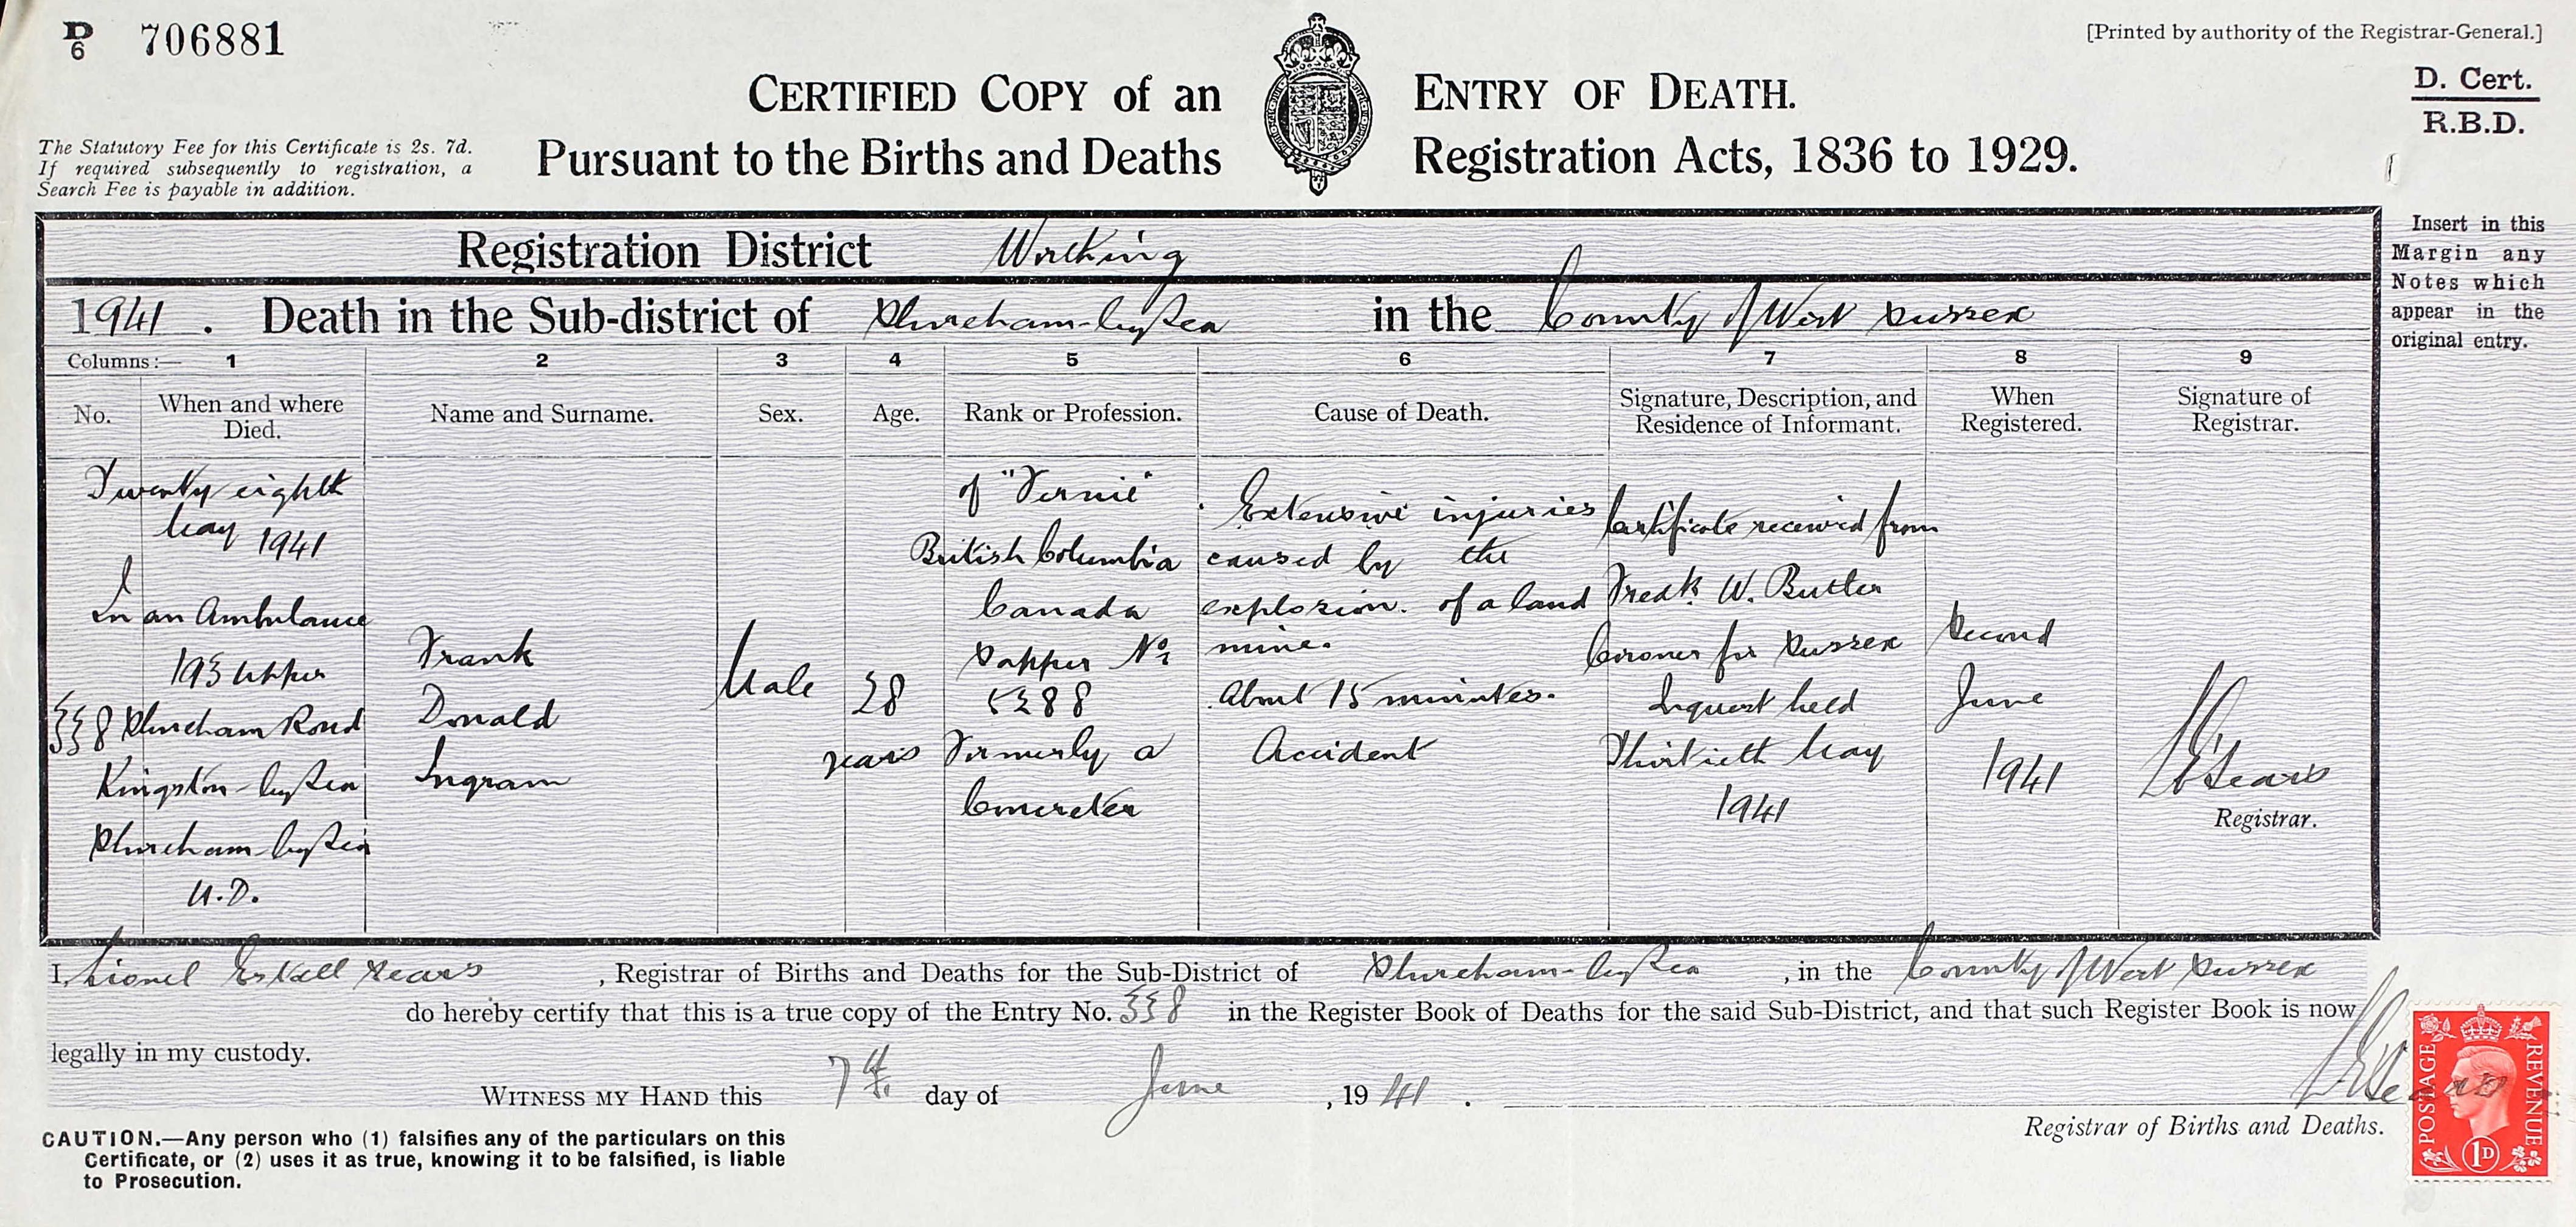 D
6 706881
[Printed by authority of the Registrar-General.]
D. Cert.
R.B.D.
CERTIFIED COPY of an ENTRY OF DEATH.
Pursuant to the Births and Deaths Registration Acts, 1836 to 1929.
The Statutory Fee for this Certificate is 2s. 7d.
If required subsequently to registration, a
Search Fee is payable in addition.
Insert in this
Margin any
Notes which
appear in the
original entry.
Registration District Worthing
1941. Death in the Sub-district of Shoreham-by-Sea in the County of West Sussex
Columns:— 1 2 3 4 5 6 7 8 9
No.
When and where
Died.
Name and Surname.
Sex.
Age.
Rank or Profession.
Cause of Death.
Signature, Description, and
Residence of Informant.
When
Registered.
Signature of
Registrar.
338
Twenty eighth
May 1941
In an Ambulance
193 Upper
Shoreham Road
Kingston-by-Sea
Shoreham-by-Sea
U.D.
Frank
Donald
Ingram
Male
28
years
of "Fernie"
British Columbia
Canada
Sapper No.
5288
Formerly a
Concreter
Extensive injuries
caused by the
explosion. of a land
mine.
About 15 minutes.
Accident
Certificate received from
Fredk. W. Butler
Coroner for Sussex
Inquest held
Thirtieth May
1941
Second
June
1941
L E Sears
Registrar.
I, Lionel Sears, Registrar of Births and Deaths for the Sub-District of Shoreham-by-Sea, in the County of West Sussex
do hereby certify that this is a true copy of the Entry No. 338 in the Register Book of Deaths for the said Sub-District, and that such Register Book is now
legally in my custody.
WITNESS MY HAND this 7th day of June, 1941.
L E Sears
Registrar of Births and Deaths.
CAUTION.—Any person who (1) falsifies any of the particulars on this
Certificate, or (2) uses it as true, knowing it to be falsified, is liable
to Prosecution.
POSTAGE
REVENUE
1D